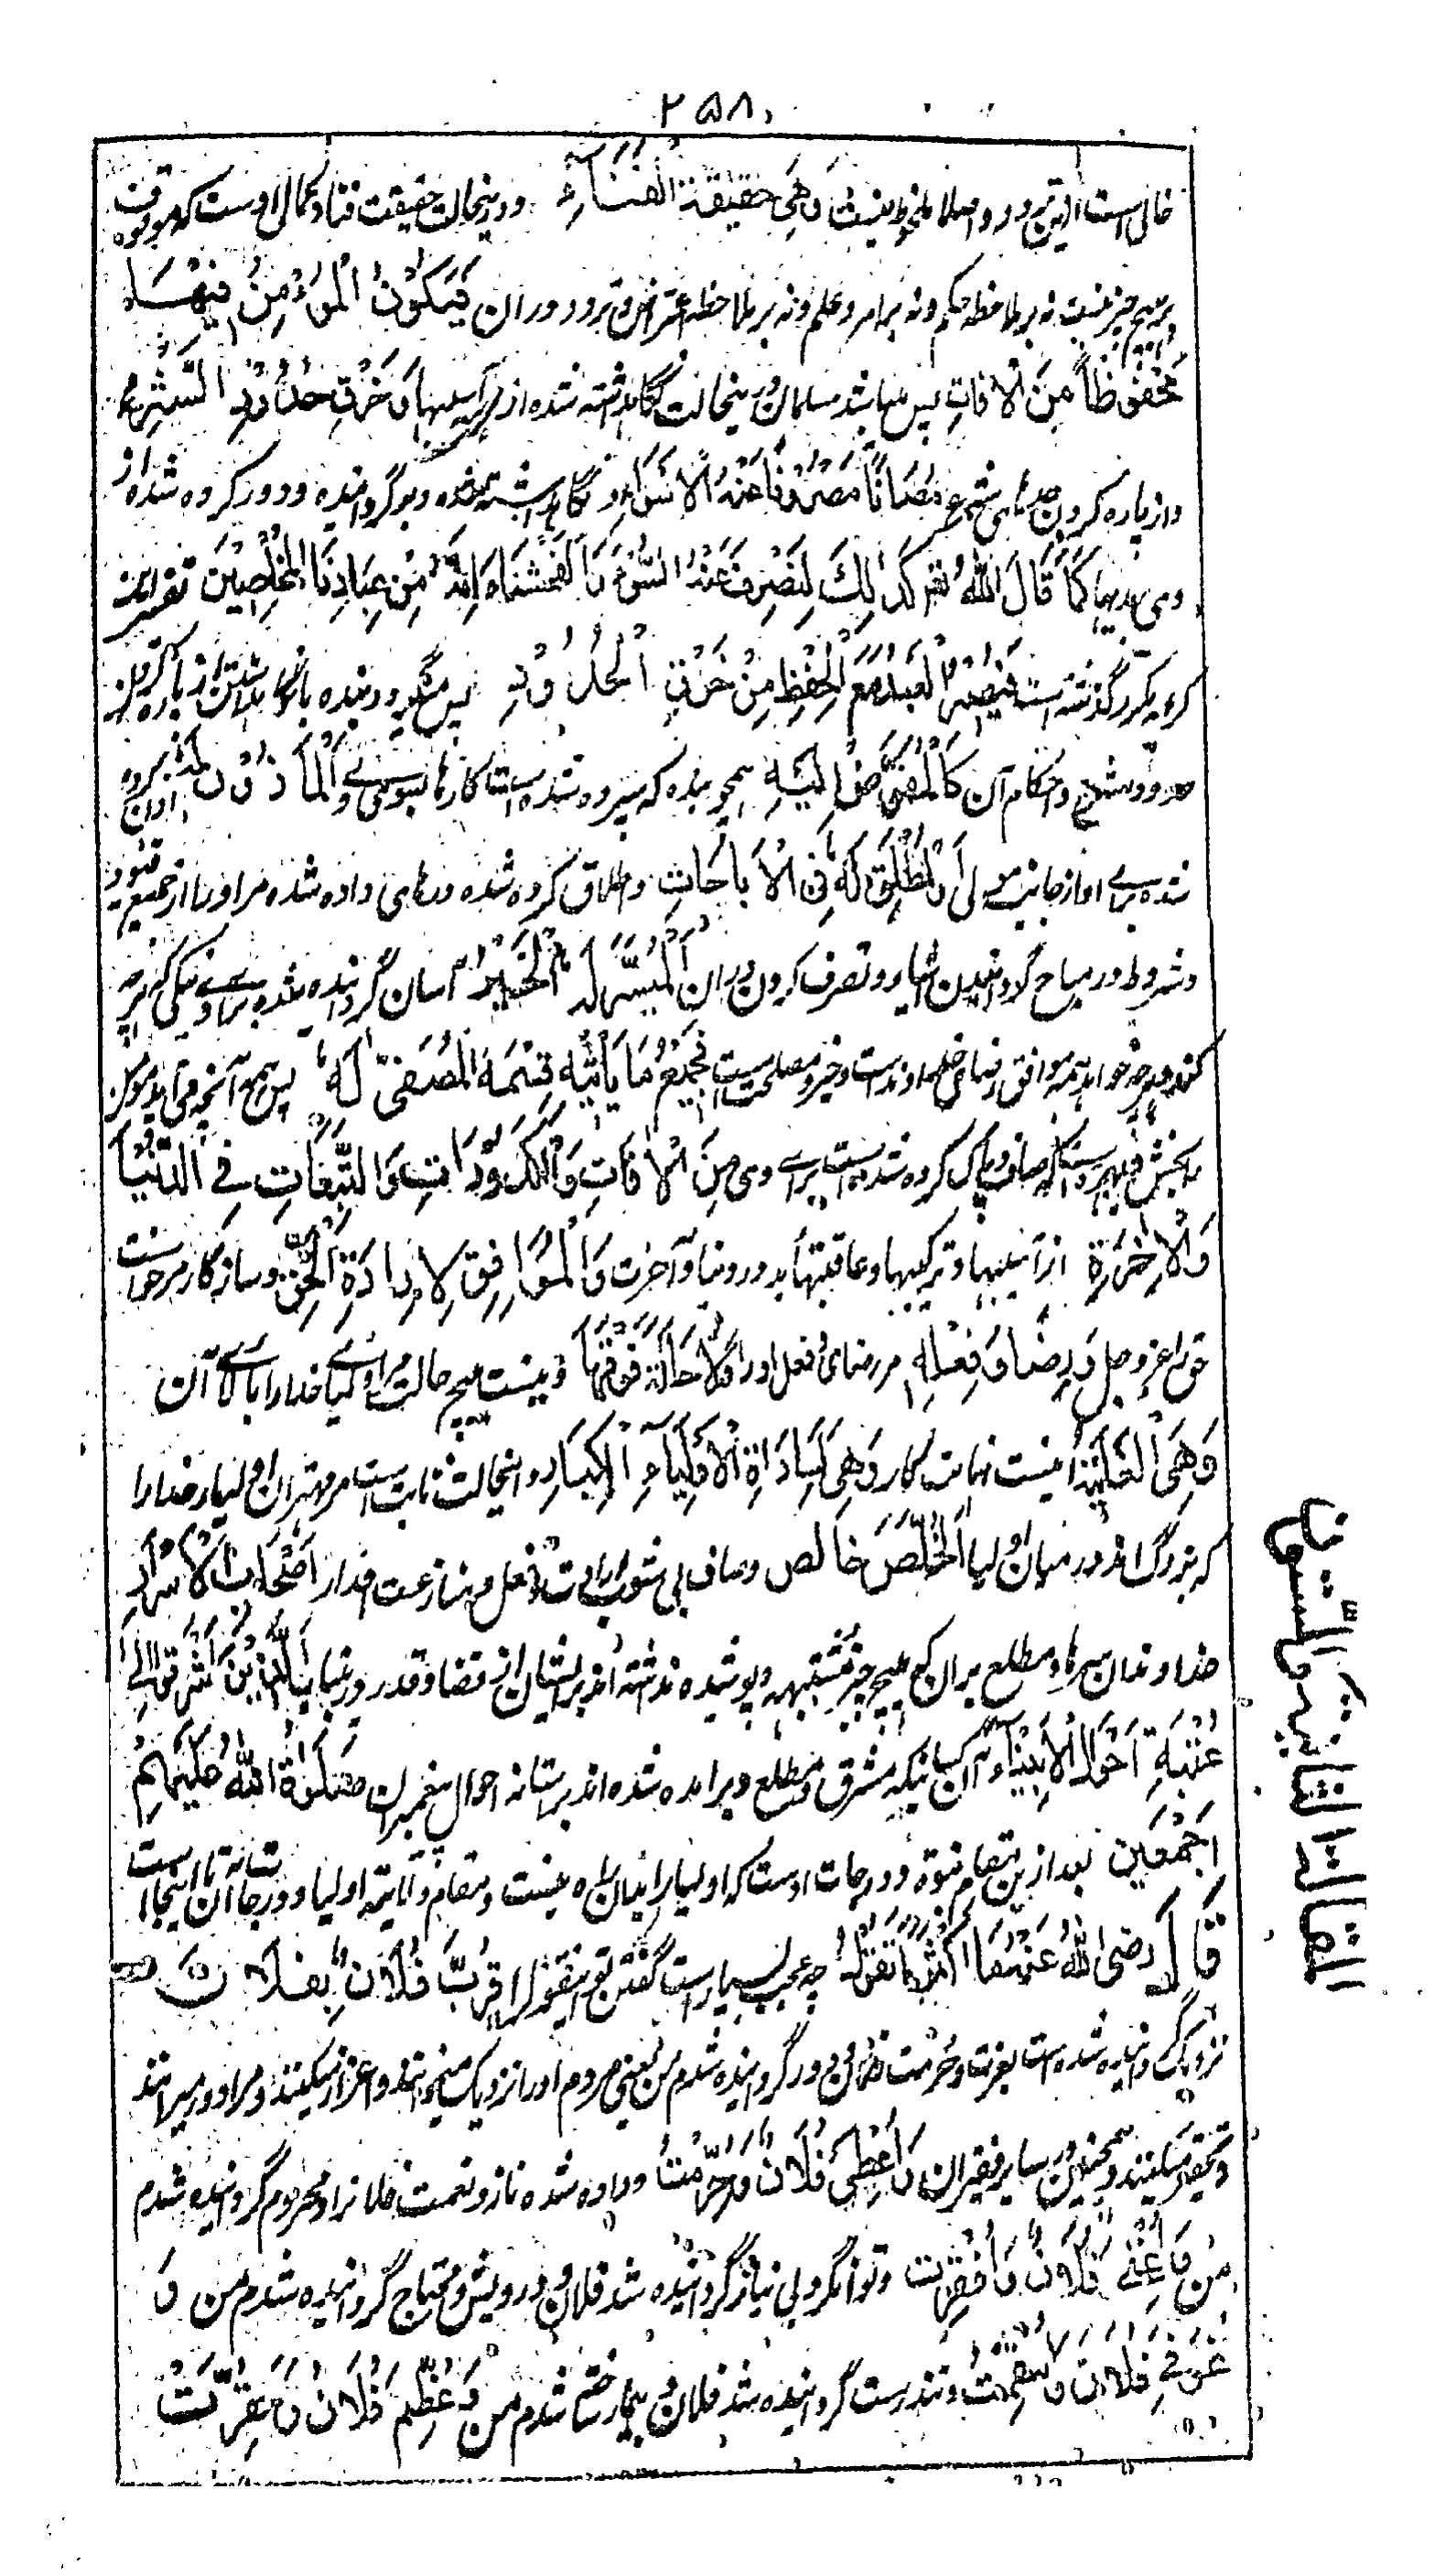 ۲۵۸
خالی است این تردد و اصلا ملحوظ نیست وَهِیَ حَقِیْقَةُ الْفَنَاءِ و درینحالت حقیقت فنا و کمال اوست که موقوف
بر هیچ چیز نیست نه بر ملاحظه حکم و نه بر امر و علم و نه بر ملاحظه اعتراض و تردد دران فَیَکُوْنُ الْمُؤْمِنُ فِیْهَا
مَحْفُوْظًا مِنَ الْاٰفَاتِ پس میباشد مسلمان درینحالت نگاهداشته شده از آسیبها وَخَرْقِ حُدُوْدِ الشَّرْعِ
و از پاره کردن حدهای شرع مُصَانًا مَصْرُوْفًا عَنْهُ الْاَسْوَاءُ و نگاهداشته شده و بر گردانیده و دور کرده شده از
وی بدیها کَمَا قَالَ اللّٰهُ تعَالٰی کَذٰلِکَ لِنَصْرِفَ عَنْهُ السُّوْٓءَ وَالْفَحْشَآءَ اِنَّهٗ مِنْ عِبَادِنَا الْمُخْلَصِیْنَ تفسیر این
کریمه مکرر گذشته است فَیَصِیْرُ الْعَبْدُ مَعَ الْحِفْظِ مِنْ خَرْقِ الْحُدُوْدِ پس میگردد بنده با نگاهداشتن از پاره کردن
حدود شرع و احکام آن کَالْمُفَوَّضِ اِلَیْهِ همچو بنده که سپرده شده است کارها بسوی وی وَالْمَاْذُوْنِ لَهٗ و اذن کرده
شده برای او از جانب مولی وَالْمُطْلَقِ لَهٗ فِی الْاِبَاحَاتِ و اطلاق کرده شده و رهای داده شده مر او را از جمیع قیود
و شروط در مباح گردانیدن اشیاء و تصرف کردن دران اَلْمُیَسَّرِ لَهُ الْخَیْرُ آسان گردانیده شده برای وی نیکی که هر چه
کند و هر چه خواهد همه موافق رضای خداوند است و خیر و مصلحت است فَجَمِیْعُ مَا یَاْتِیْهِ قِسْمَهُ الْمُصَفّٰی لَهٗ پس همه آنچه می آید مومن را
بخش و بهره اوست که صاف و پاک کرده شده است برای وی مِنَ الْاٰفَاتِ وَالْکُدُوْرَاتِ وَالتَّبِعَاتِ فِی الدُّنْیَا
وَالْاٰخِرَةِ از آسیبها و تیرگیها و عاقبتها بد در دنیا و آخرت وَالْمُوَافِقَ لِاِرَادَةِ الْحَقِّ و سازگار مر خواست
حق را عز و جل وَرِضَاهُ وَفِعْلِهٖ مر رضای و فعل او را وَلَا حَالَةَ فَوْقَهَا و نیست هیچ حالت مر اولیای خدا را بالای آن
وَهِیَ الْغَایَةُ اینست نهایت کار وَهِیَ لِسَادَاةِ الْاَوْلِیَاءِ الْکِبَارِ و اینحالت ثابت است مر مهتران اولیاء خدا را
که بزرگ اند در میان اولیا اَلْخُلَّصِ خالص و صاف بی شوب ارادت و فعل و منازعت اقدار اَصْحَابِ الْاَسْرَارِ
خداوندان سرها و مطلع بران که هیچ چیز مشتبهه و پوشیده نداشته اند بر ایشان از قضا و قدر در دنیا اَلَّذِیْنَ اَشْرَفُوْا اِلٰی
عُتْبَةِ اَحْوَالِ الْاَنْبِیَاءِ آن کسانیکه مشرف و مطلع و برآمده شده اند بر استانه احوال پیغمبران صَلَوَاةُ اللّٰهِ عَلَیْهِمْ
اَجْمَعِیْنَ بعد ازین مقام نبوة و درجات اوست که اولیا را بدان راه نیست و مقام ولایة اولیا و درجات آن تا اینجا است
قَالَ رضی اللّٰهُ عَنْهُ مَا اَکْثَرَ مَا تَقُوْلُ چه عجب بسیار است گفتن تو اینقول را قُرِّبَ فُلَانٌ وَبُعِّدْتُ
نزدیک گردانیده شده است بعزت و حرمت فلانی و دور گردانیده شدم من یعنی مردم او را نزدیک میخوانند و اعزاز میکنند و مرا دور میرانند
و تحقیر میکنند و همچنین در سایر فقیران وَاُعْطِیَ فُلَانٌ وَحُرِمْتُ و داده شده ناز و نعمت فلانرا و محروم گردانیده شدم
من وَاُغْنِیَ فُلَانٌ وَاُفْقِرْتُ و توانگر و بی نیاز گردانیده شد فلان و درویش و محتاج گردانیده شدم من وَ
عُوْفِیَ فُلَانٌ وَاُسْقِمْتُ و تندرست گردانیده شد فلان و بیمار ساخته شدم من وَعُظِّمَ فُلَانٌ وَحُقِّرْتُ
المقالة الثانیه والستون